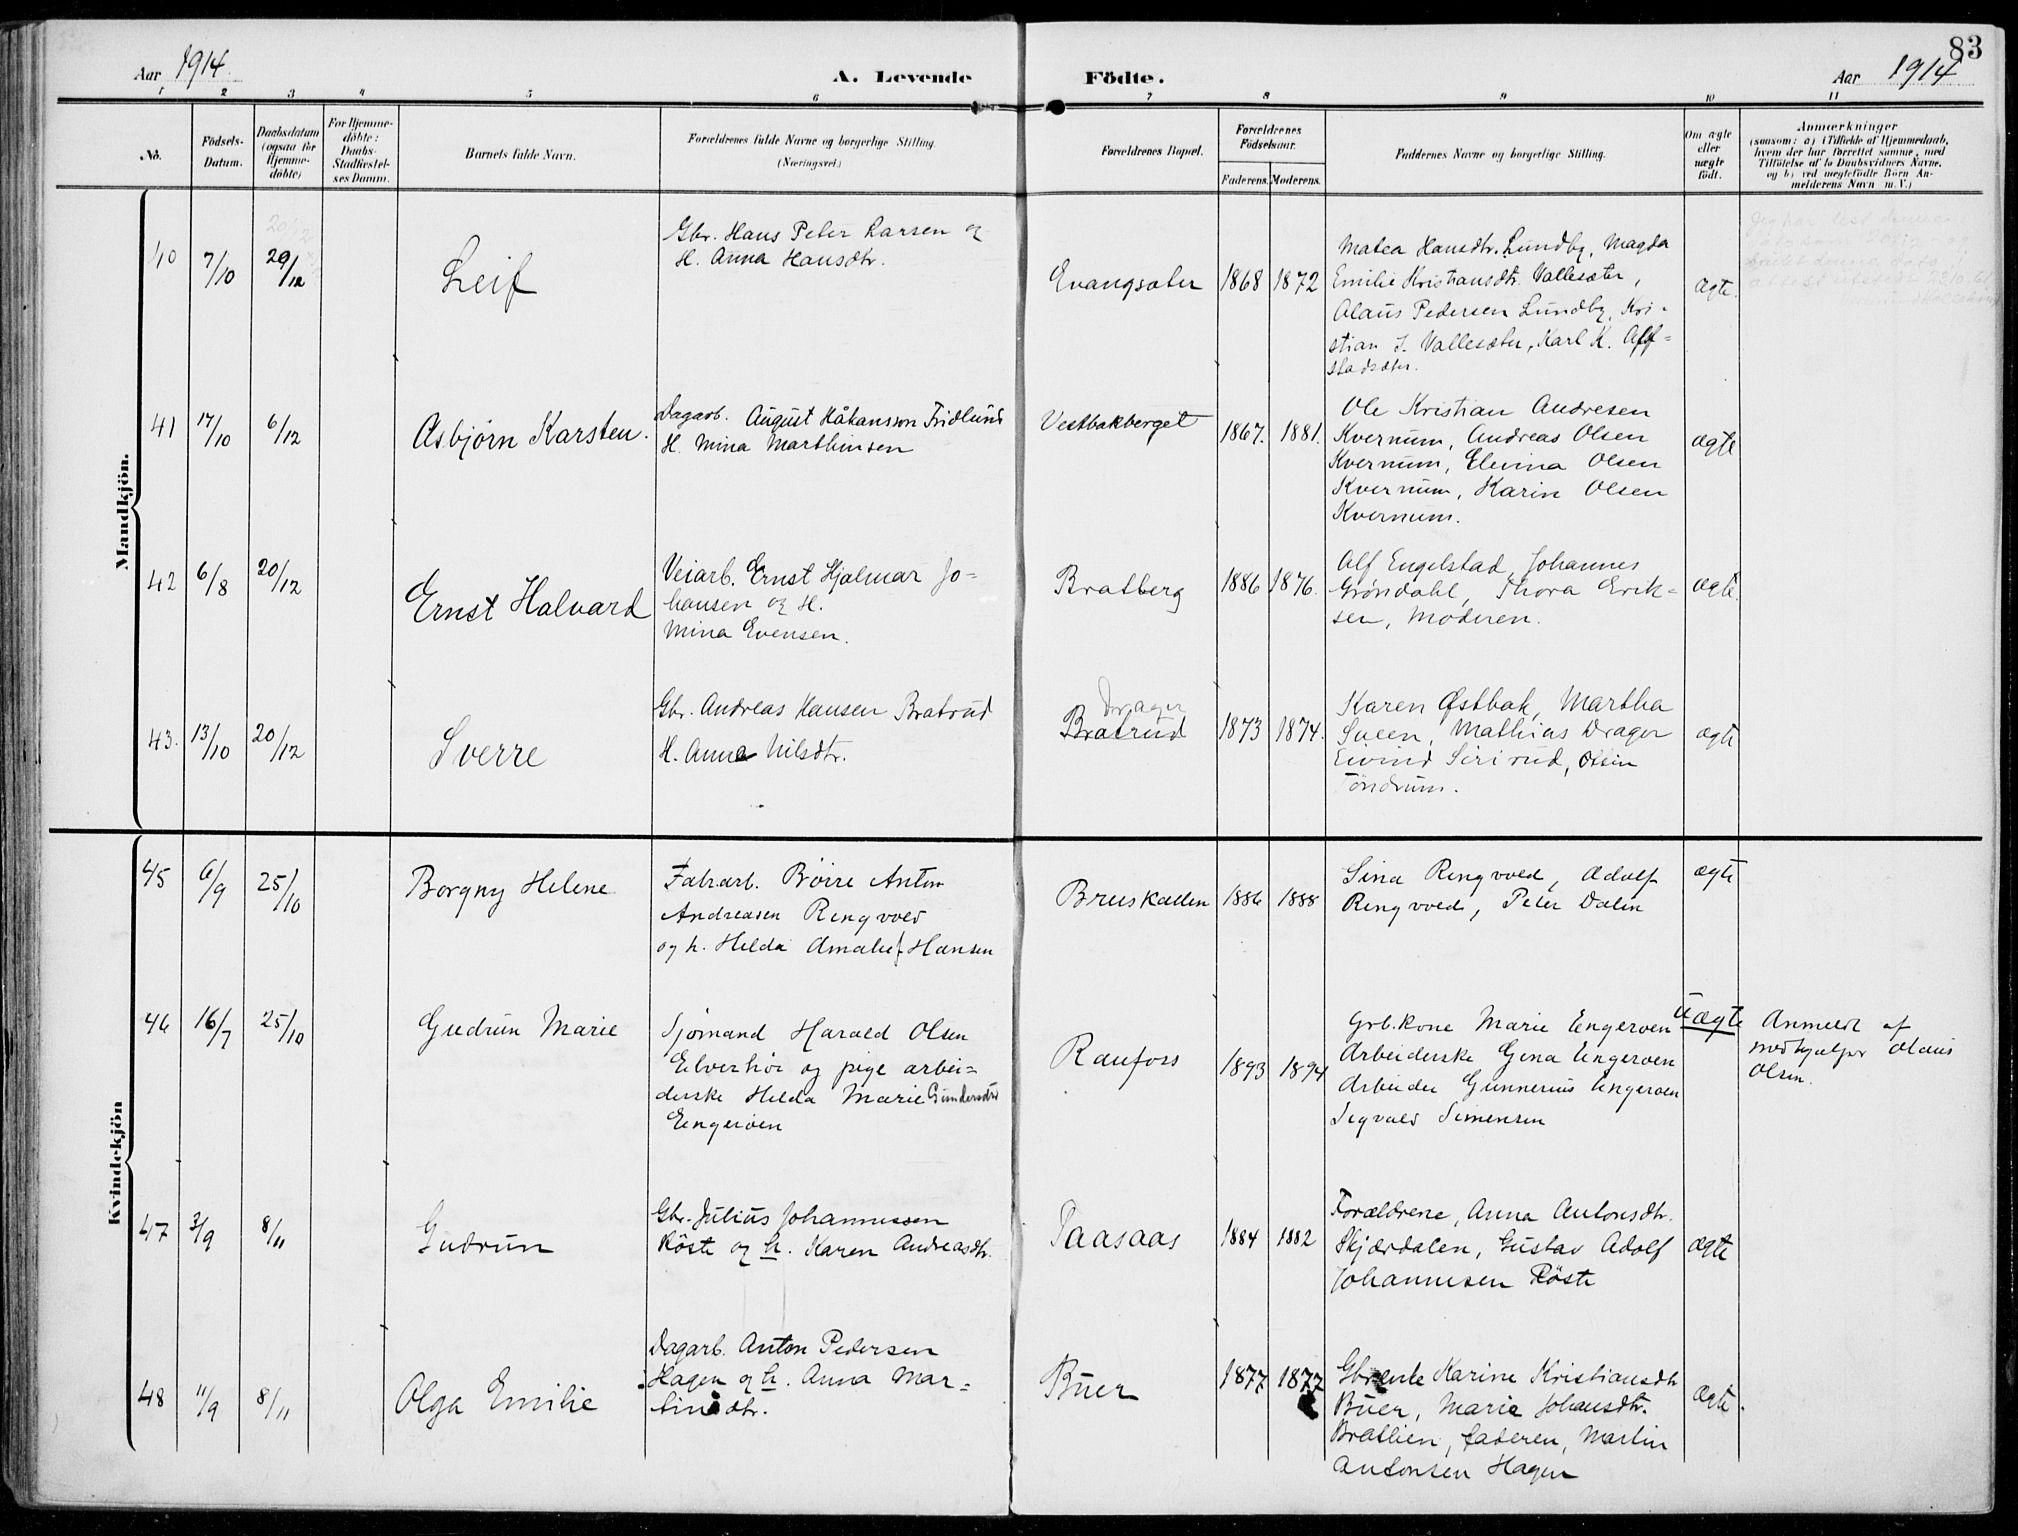 83
Aar 1914.
A. Levende Födte.
Aar 1914
1 2 3 4 5 6 7 8 9 10 11
No.
Födsels-
Datum.
Daabsdatum
(ogsaa for
Hjemme-
döbte)
For Hjemme-
döbte:
Daabs-
Stadfæstel-
ses Datum.
Barnets fulde Navn.
Forældrenes fulde Navne og borgerlige Stilling.
(Næringsvei.)
Forældrenes Bopæl.
Forældrenes
Födselsaar.
Faderens. Moderens.
Faddernes Navne og borgerlige Stilling.
Om ægte
eller
uægte
födt.
Anmærkninger
(saasom: a) i Tilfælde af Hjemmedaab,
hvem der har forrettet samme, med
Tilföielse af to Daabsvidners Navne,
og b) ved uægtefödte Börn An-
melderens Navn m. V.)
Mandkjön.
40
7/10
20/12
Leif
Gbr. Hans Peter Larsen og
H. Anna Hansdtr.
Evangsæter
1868
1872
Matea Hansdtr. Lundby, Magda
Emilie Kristiansdtr. Vallesæter,
Olaus Pedersen Lundby, Kri-
stian J. Vallesæter, Karl K. Aff-
stadsæter.
ægte.
41
17/10
6/12
Asbjørn Karsten.
Dagarb. August Håkansson Fridlund
H. Mina Marthinsen
Vestbakberget
1867.
1881.
Ole Kristian Andresen
Kvernum, Andreas Olsen
Kvernum, Elevina Olsen
Kvernum, Karin Olsen
Kvernum.
ægte
42
6/8
20/12
Ernst Halvard
Veiarb. Ernst Hjalmar Jo-
hansen og H.
Mina Evensen.
Bratberg
1886
1876.
Alf Engelstad, Johannes
Grøndahl, Thora Erik-
sen, Moderen.
ægte.
43.
13/10
20/12
Sverre
Gbr. Andreas Hansen Bratrud
H. Anna Nilsdtr.
Drager
Bratrud
1873
1874.
Karen Østbak, Martha
Sveen, Mathias Drager
Eivind Sirirud, Olsin
Töndrum.
ægte
Kvindekjön
45
6/9
25/10
Borgny Helene
Fabarb. Börre Anton
Andreasen Ringvold
og h. Helda Amalie Hansen
Bruskallen
1886
1888
Sina Ringvold, Adolf
Ringvold, Peter Dalen
ægte
46
16/7
25/10
Gudrun Marie
Sjömand Harald Olsen
Elverhöi og pige arbei-
derske Helda Marie Gundersdtr
Engeröen
Raufoss
1893
1894
Grb.kone Marie Engeroen
Arbeiderske Gina Engeroen
Arbeider Gunnerius Engeroen
Sigvald Simensen
Uægte
Anmeldt af
medhjælper Olaus
Olsen.
47
3/9
8/11
Gudrun
Gbr. Julius Johannessen
Röste og h. Karen Andreasdtr.
Paasaas
1884
1882
Forældrene, Anna Antonsdtr.
Skjærdalen, Gustav Adolf
Johannesen Röste
ægte
48
11/9
8/11
Olga Emilie
Dagarb. Anton Pedersen
Hagen og h. Anna Mar-
tinsdtr.
Buer
1877
1877
Gbrente Karine Kristiansdtr
Buer, Marie Johansdtr.
Bratlien, faderen, Martin
Antonsen Hagen
ægte.